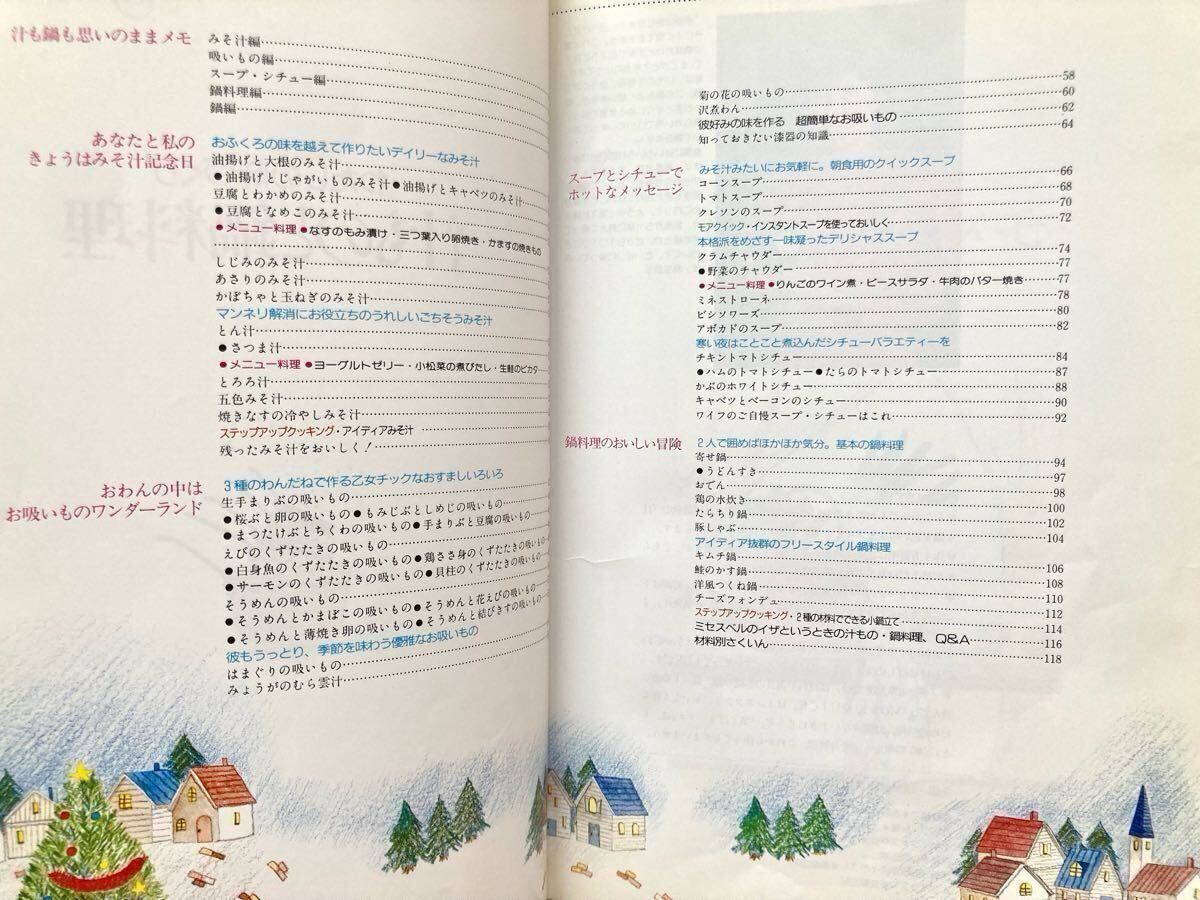 汁も鍋も思いのままメモ
みそ汁編
吸いもの編
スープ・シチュー編
鍋料理編
鍋編
あなたと私の
きょうはみそ汁記念日
おふくろの味を越えて作りたいデイリーなみそ汁
油揚げと大根のみそ汁
●油揚げとじゃがいものみそ汁●油揚げとキャベツのみそ汁
豆腐とわかめのみそ汁
●豆腐となめこのみそ汁
●メニュー料理●なすのもみ漬け・三つ葉入り卵焼き・かますの焼きもの
しじみのみそ汁
あさりのみそ汁
かぼちゃと玉ねぎのみそ汁
マンネリ解消にお役立ちのうれしいごちそうみそ汁
とん汁
●さつま汁
●メニュー料理●ヨーグルトゼリー・小松菜の煮びたし・生鮭のピカタ
とろろ汁
五色みそ汁
焼きなすの冷やしみそ汁
ステップアップクッキング・アイディアみそ汁
残ったみそ汁をおいしく！
おわんの中は
お吸いものワンダーランド
3種のわんだねで作る乙女チックなおすましいろいろ
生手まりぶの吸いもの
●桜ぶと卵の吸いもの●もみじぶとしめじの吸いもの
●まつたけぶとちくわの吸いもの●手まりぶと豆腐の吸いもの
えびのくずたたきの吸いもの
●白身魚のくずたたきの吸いもの●鶏ささ身のくずたたきの吸いもの
●サーモンのくずたたきの吸いもの●貝柱のくずたたきの吸いもの
そうめんの吸いもの
●そうめんとかまぼこの吸いもの●そうめんと花えびの吸いもの
●そうめんと薄焼き卵の吸いもの●そうめんと結びきすの吸いもの
彼もうっとり、季節を味わう優雅なお吸いもの
はまぐりの吸いもの
みょうがのむら雲汁
菊の花の吸いもの 58
沢煮わん 60
彼好みの味を作る 超簡単なお吸いもの 62
知っておきたい漆器の知識 64
スープとシチューで
ホットなメッセージ
みそ汁みたいにお気軽に。朝食用のクイックスープ
コーンスープ 66
トマトスープ 68
クレソンのスープ 70
モアクイック・インスタントスープを使っておいしく 72
本格派をめざす一味凝ったデリシャススープ
クラムチャウダー 74
●野菜のチャウダー 77
●メニュー料理●りんごのワイン煮・ピースサラダ・牛肉のバター焼き 77
ミネストローネ 78
ビシソワーズ 80
アボカドのスープ 82
寒い夜はことこと煮込んだシチューバラエティーを
チキントマトシチュー 84
●ハムのトマトシチュー●たらのトマトシチュー 87
かぶのホワイトシチュー 88
キャベツとベーコンのシチュー 90
ワイフのご自慢スープ・シチューはこれ 92
鍋料理のおいしい冒険
2人で囲めばほかほか気分。基本の鍋料理
寄せ鍋 94
●うどんすき 97
おでん 98
鶏の水炊き 100
たらちり鍋 102
豚しゃぶ 104
アイディア抜群のフリースタイル鍋料理
キムチ鍋 106
鮭のかす鍋 108
洋風つくね鍋 110
チーズフォンデュ 112
ステップアップクッキング・2種の材料でできる小鍋立て 114
ミセスベルのイザというときの汁もの・鍋料理、Q&A 116
材料別さくいん 118